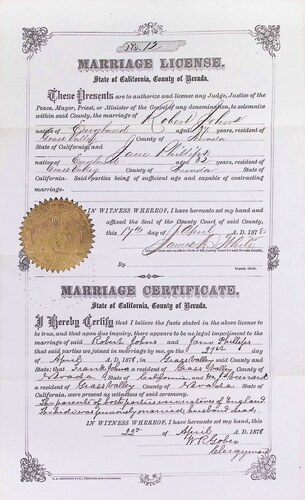 No. 12
MARRIAGE LICENSE.
State of California, County of Nevada.
These Presents are to authorize and license any Judge, Justice of the
Peace, Mayor, Priest, or Minister of the Gospel of any denomination, to solemnize
within said County, the marriage of Robert Johns
native of England aged 37 years, resident of
Grass Valley County of Nevada
State of California, and Jane Phillips
native of England aged 32 years, resident of
Grass Valley County of Nevada State of
California. Said parties being of sufficient age and capable of contracting
marriage.
IN WITNESS WHEREOF, I have hereunto set my hand and
affixed the Seal of the County Court of said County,
this 17th day of April A.D. 1878.
By
Deputy Clerk.
MARRIAGE CERTIFICATE.
State of California, County of Nevada.
I Hereby Certify that I believe the facts stated in the above license
to be true, and that upon due inquiry, there appears to be no legal impediment to the
marriage of said Robert Johns and Jane Phillips
that said parties were joined in marriage by me, on the 22nd day of
April A.D. 1878, in Grass Valley said County and
State; that Frank Johns a resident of Grass Valley
County of Nevada State of California, and
a resident of Grass Valley County of Nevada State of
California, were present as witnesses of said ceremony.
The parents of both parties were natives of England
The bride was previously married, husband dead.
IN WITNESS WHEREOF, I have hereunto set my hand, this
22nd day of April A.D. 1878
W. P. Gober
Clergyman